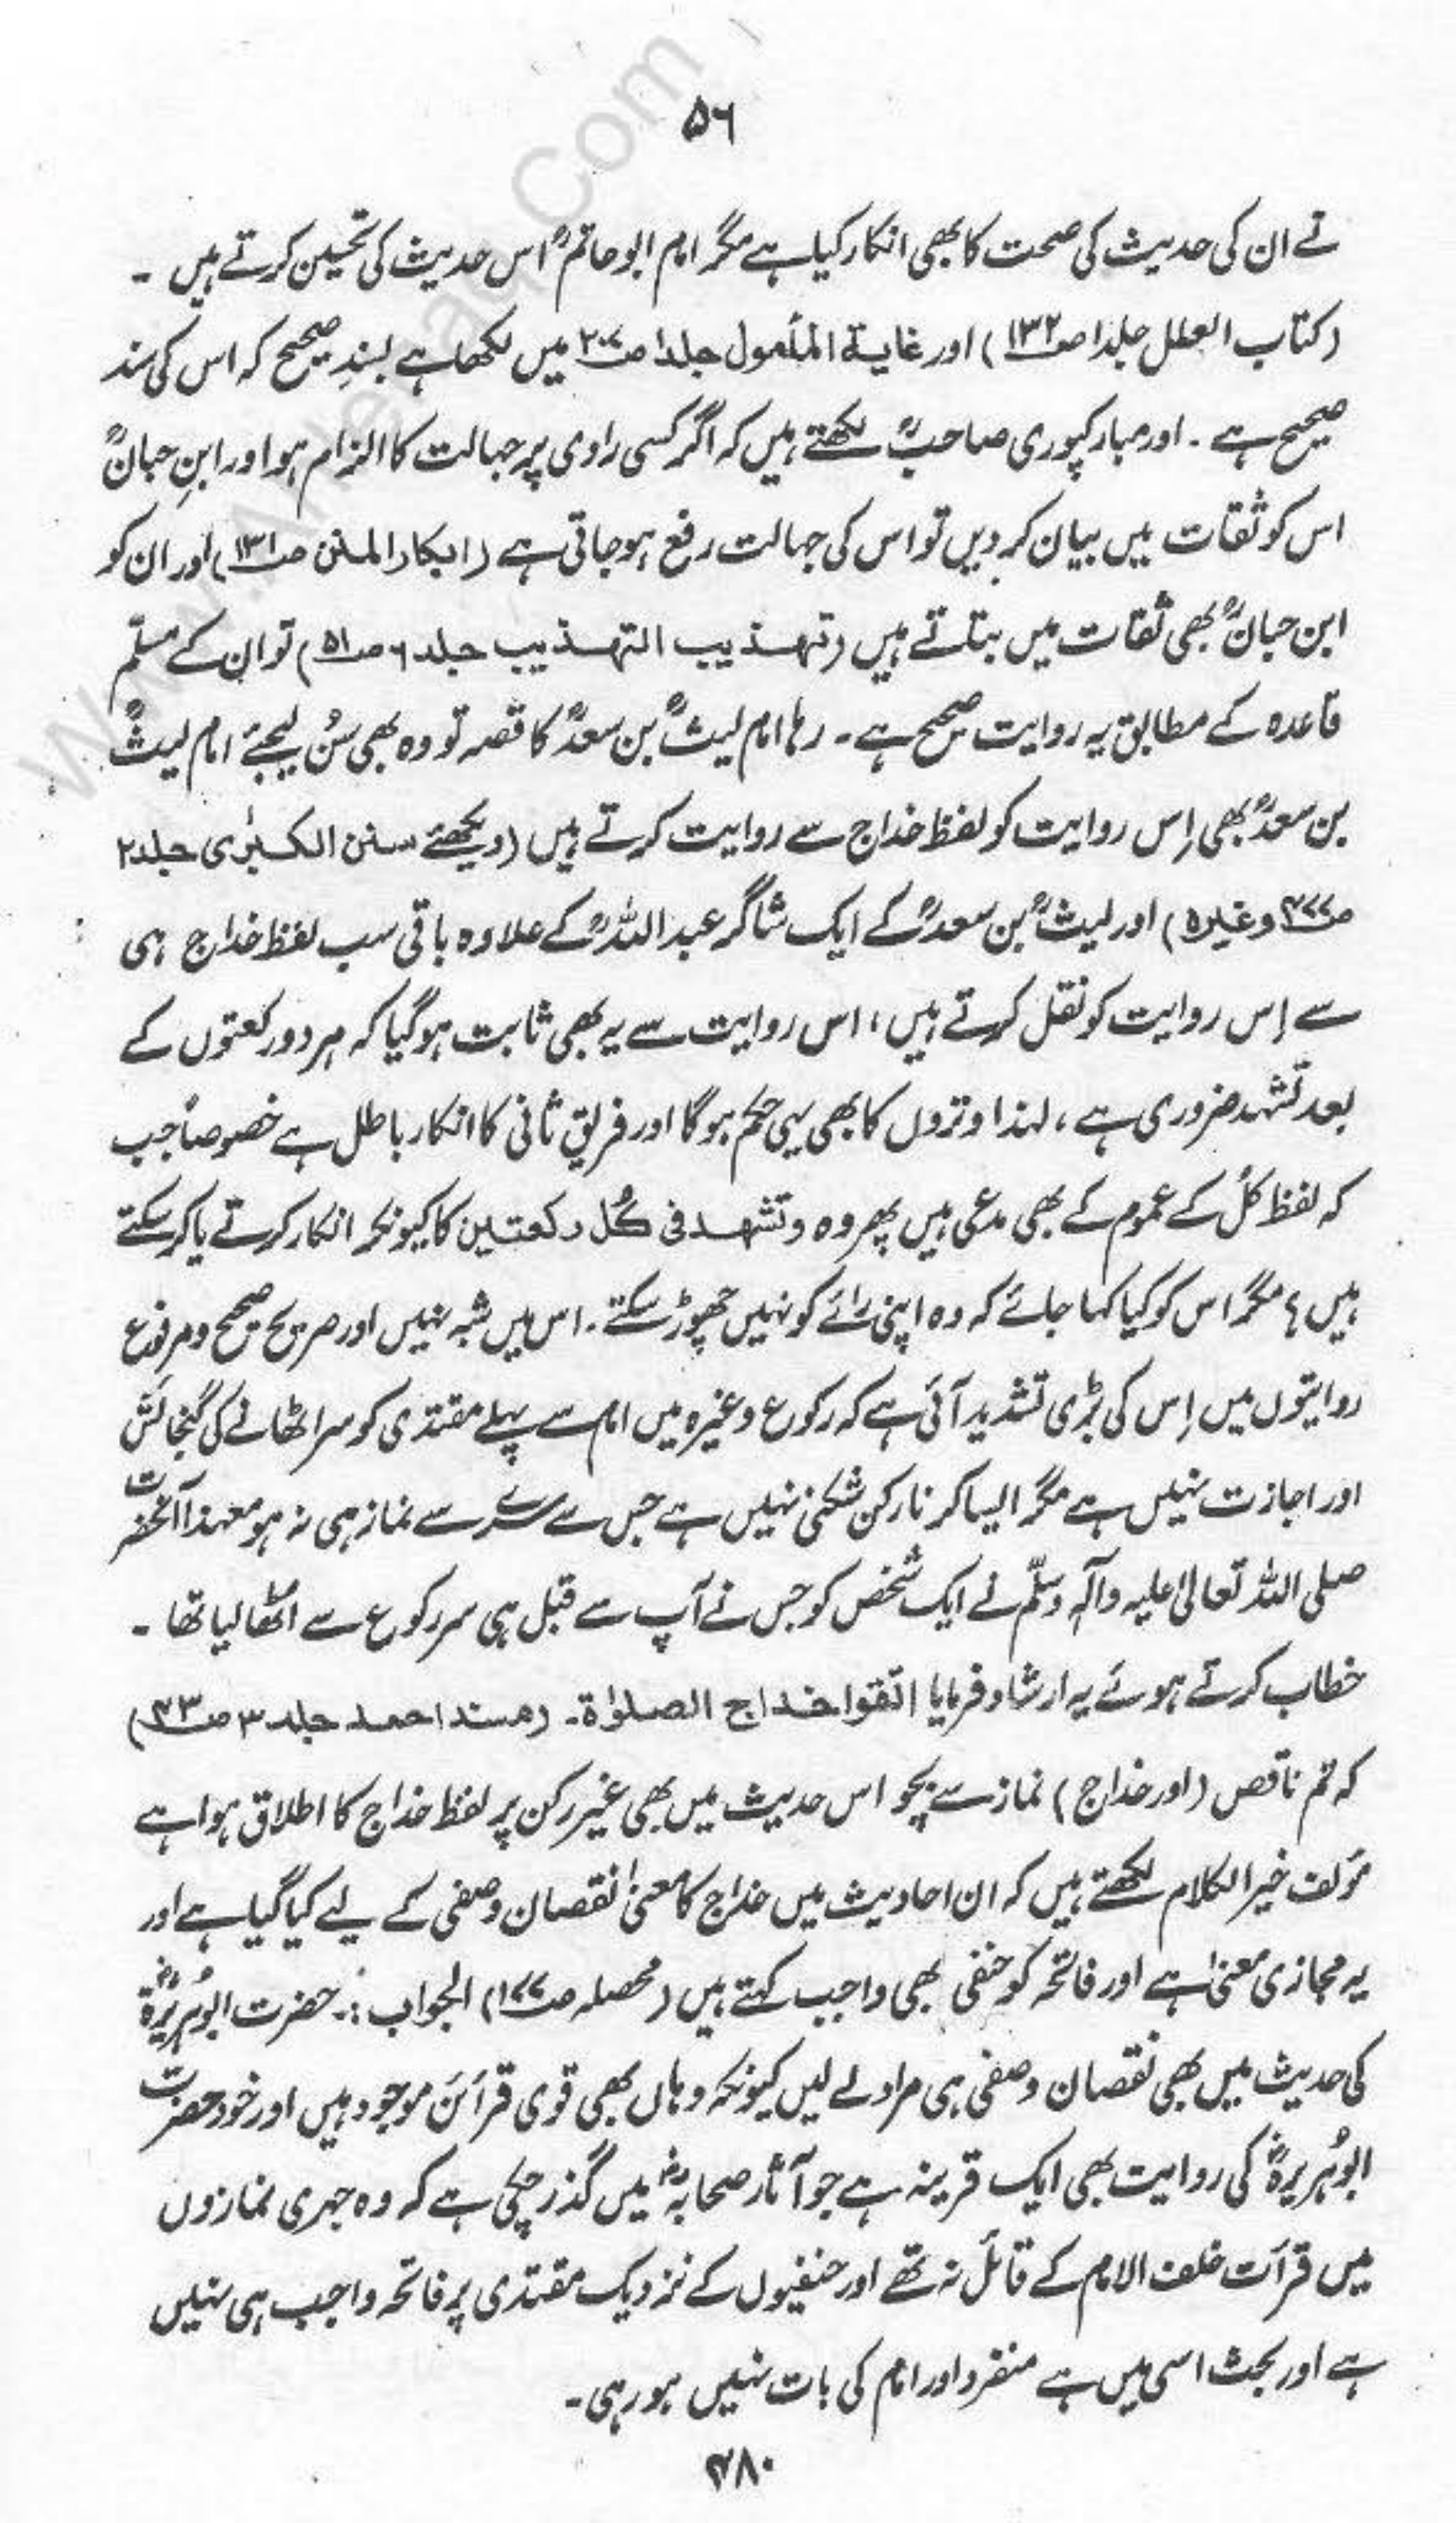 ۵۶
نے ان کی حدیث کی صحت کا بھی انکار کیا ہے مگر امام ابو حاتمؒ اس حدیث کی تحسین کرتے ہیں ۔
(کتاب العلل جلد۱ ص۱۳۲) اور غایة المأمول جلد۱ ص۲۰۷ میں لکھا ہے بسندِ صحیح کہ اس کی سند
صحیح ہے ۔ اور مبارکپوری صاحبؒ لکھتے ہیں کہ اگر کسی راوی پر جہالت کا الزام ہو اور ابنِ حبانؒ
اس کو ثقات میں بیان کر دیں تو اس کی جہالت رفع ہو جاتی ہے (ابکار المنن ص۱۳۱) اور ان کو
ابن حبانؒ بھی ثقات میں بتلاتے ہیں (تہذیب التہذیب جلد ۶ ص۵۱) تو ان کے مسلّم
قاعدہ کے مطابق یہ روایت صحیح ہے ۔ رہا امام لیثؒ بن سعدؒ کا قصہ تو وہ بھی سُن لیجئے امام لیثؒ
بن سعدؒ بھی اِس روایت کو لفظ خداج سے روایت کرتے ہیں (دیکھئے سنن الکبرٰی جلد۲
وغیرہ) اور لیثؒ بن سعدؒ کے ایک شاگر عبد اللہؒ کے علاوہ باقی سب لفظ خداج ہی
سے اِس روایت کو نقل کرتے ہیں، اس روایت سے یہ بھی ثابت ہو گیا کہ ہر دو رکعتوں کے
بعد تشہد ضروری ہے، لہٰذا وتروں کا بھی یہی حکم ہو گا اور فریق ثانی کا انکار باطل ہے خصوصاً جب
کہ لفظ کُل کے عموم کے بھی مدعی ہیں پھر وہ وتشهد فی کُل رکعتین کا کیونکر انکار کرتے یا کر سکتے
ہیں؟ مگر اس کو کیا کہا جائے کہ وہ اپنی رائے کو نہیں چھوڑ سکتے ۔ اس میں شبہ نہیں اور صریح صحیح و مرفوع
روایتوں میں اِس کی بڑی تشدید آئی ہے کہ رکوع وغیرہ میں امام سے پہلے مقتدی کو سر اٹھانے کی گنجائش
اور اجازت نہیں ہے مگر ایسا کرنا رکن شکنی نہیں ہے جس سے سرے سے نماز ہی نہ ہو معہٰذا آنحضرت
صلی اللہ تعالیٰ علیہ وآلہٖ وسلّم نے ایک شخص کو جس نے آپ سے قبل ہی سر رکوع سے اٹھا لیا تھا ۔
خطاب کرتے ہوئے یہ ارشاد فرمایا اتقوا خداج الصلوٰة۔ (مسند احمد جلد ۳ ص۴۳)
کہ تم ناقص (اور خداج) نماز سے بچو اس حدیث میں بھی غیر رکن پر لفظ خداج کا اطلاق ہوا ہے
مؤلف خیر الکلام لکھتے ہیں کہ ان احادیث میں خداج کا معنیٰ نقصان وصفی کے لیے کیا گیا ہے اور
یہ مجازی معنیٰ ہے اور فاتحہ کو حنفی بھی واجب کہتے ہیں (محصلہ ص۱۷۷) الجواب :۔ حضرت ابو ہریرہؓ
کی حدیث میں بھی نقصان وصفی ہی مراد لے لیں کیونکہ وہاں بھی قوی قرائن موجود ہیں اور خود حضرت
ابو ہُریرہؓ کی روایت بھی ایک قرینہ ہے جو آثار صحابہؓ میں گذر چکی ہے کہ وہ جہری نمازوں
میں قرآت خلف الامام کے قائل نہ تھے اور حنفیوں کے نزدیک مقتدی پر فاتحہ واجب ہی نہیں
ہے اور بحث اسی میں ہے منفرد اور امام کی بات نہیں ہو رہی ۔
۴۸۰